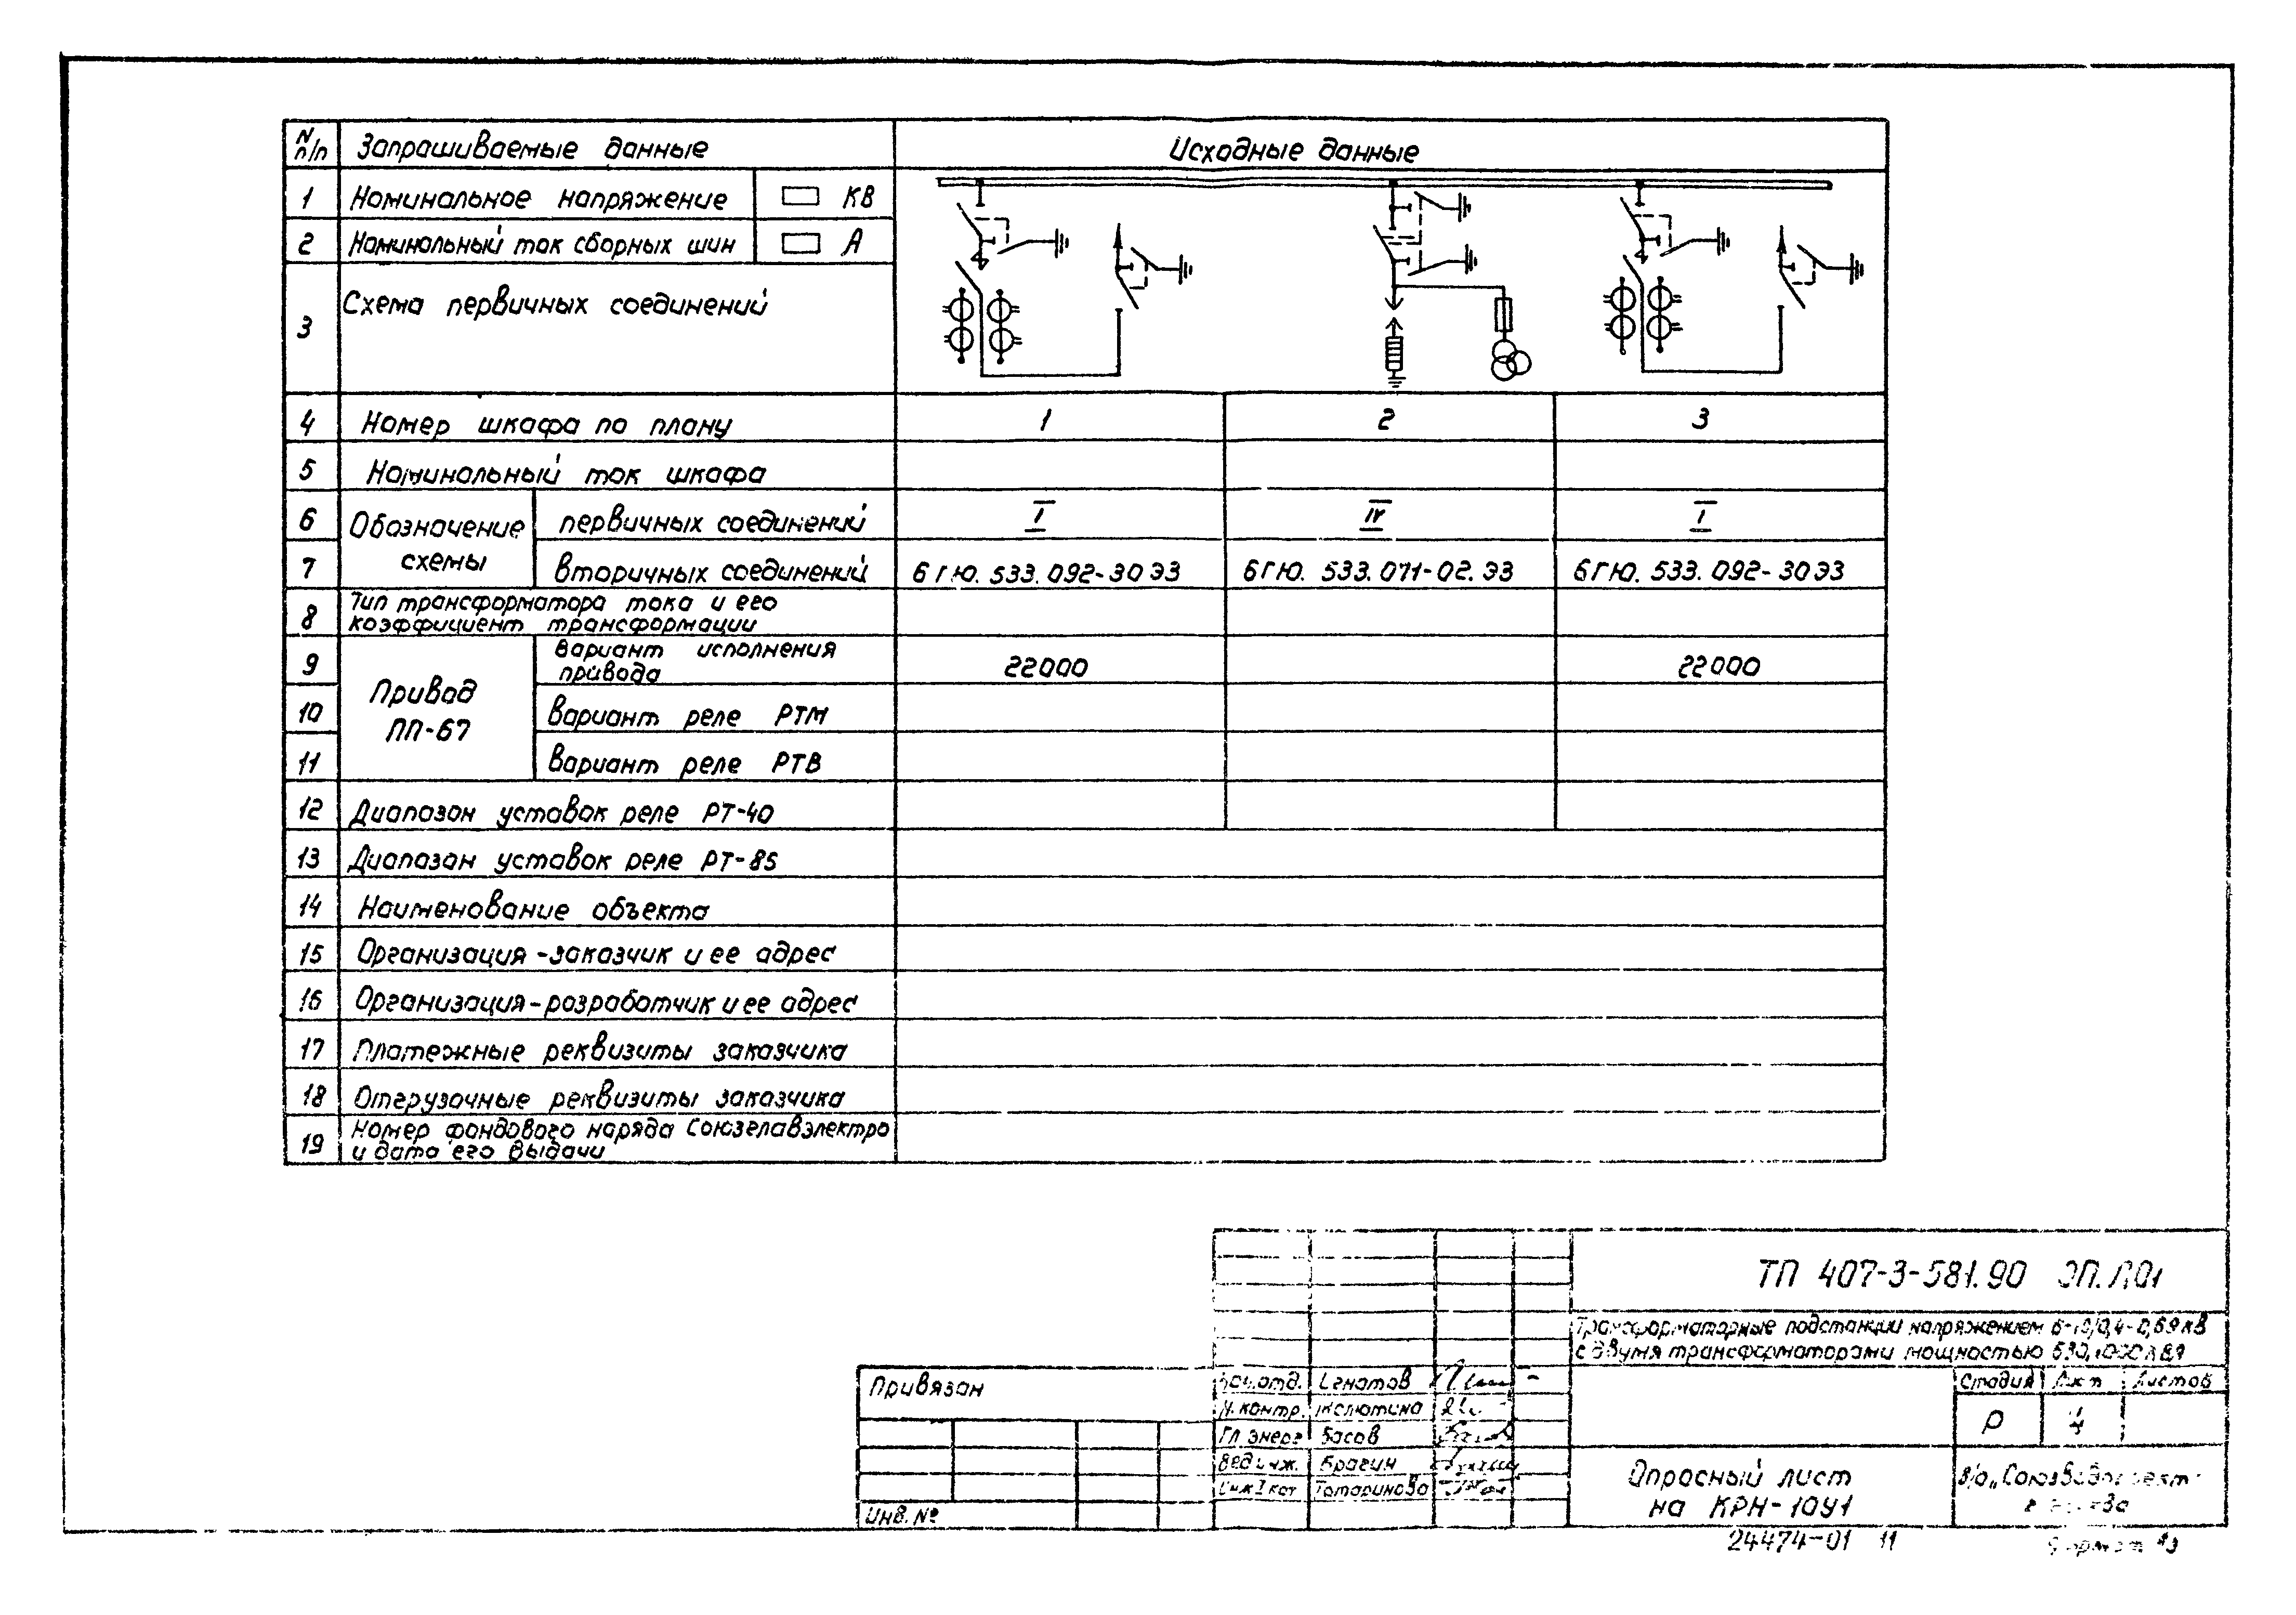 N п/п Запрашиваемые данные Исходные данные
1 Номинальное напряжение КВ
2 Номинальный ток сборных шин А
3 Схема первичных соединений
4 Номер шкафа по плану 1 2 3
5 Номинальный ток шкафа
Обозначение схемы
6 первичных соединений I IV I
7 вторичных соединений 6ГЮ.533.092-30ЭЗ 6ГЮ.533.071-02.ЭЗ 6ГЮ.533.092-30ЭЗ
8 Тип трансформатора тока и его
коэффициент трансформации
Привод ПП-67
9 Вариант исполнения
привода 22000 22000
10 Вариант реле РТМ
11 Вариант реле РТВ
12 Диапазон уставок реле РТ-40
13 Диапазон уставок реле РТ-85
14 Наименование объекта
15 Организация-заказчик и ее адрес
16 Организация-разработчик и ее адрес
17 Платежные реквизиты заказчика
18 Отгрузочные реквизиты заказчика
19 Номер фондового наряда Союзглавэлектро
и дата его выдачи
ТП 407-3-581.90 ЭП.Л01
Трансформаторные подстанции напряжением 6-10/0,4-0,69кВ
с двумя трансформаторами мощностью 630,1000кВА
Привязан
Нач.отд. Игнатов
Н.контр. Малютина
Гл.энерг Басов
Вед.инж. Брагин
Инж.I кат Татаринова
Стадия Лист Листов
Р 4
Опросный лист
на КРН-10У1
В/О „Союзводопроект"
г. Москва
Инв.№
24474-01 11
Формат А3